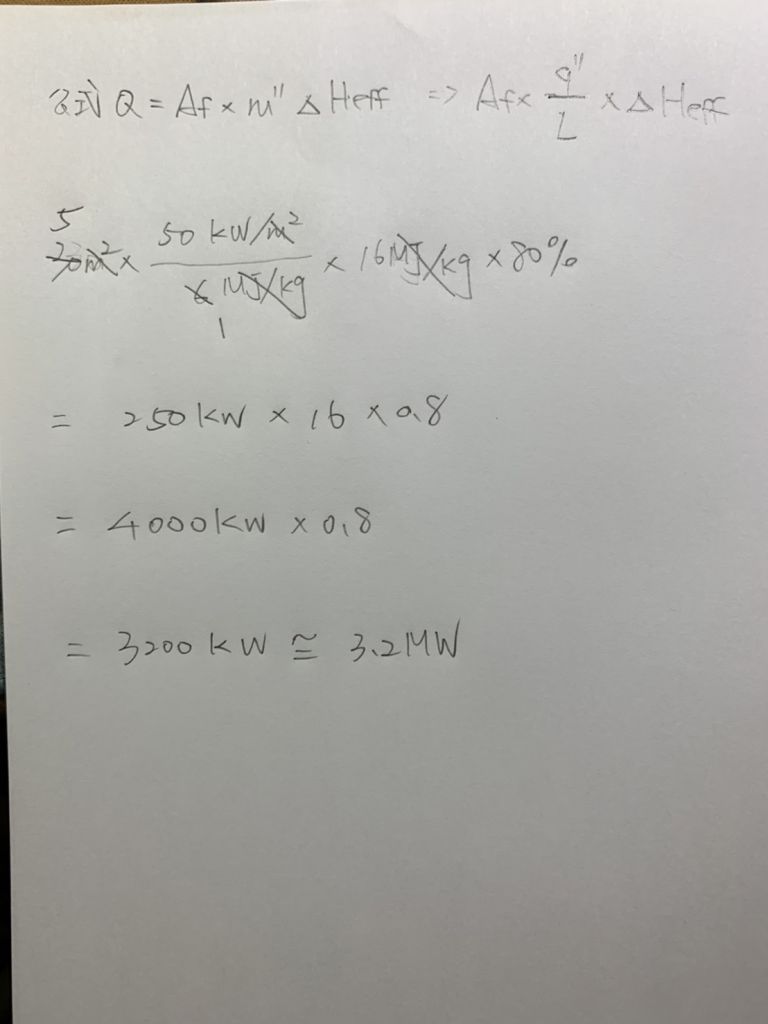 公式 Q = Af × m" △Heff => Af × q"/L × △Heff
5
30m² × 50 kW/m² / 6 MJ/kg × 16MJ/kg × 80%
1
= 250kW × 16 × 0.8
= 4000kW × 0.8
= 3200kW ≅ 3.2MW